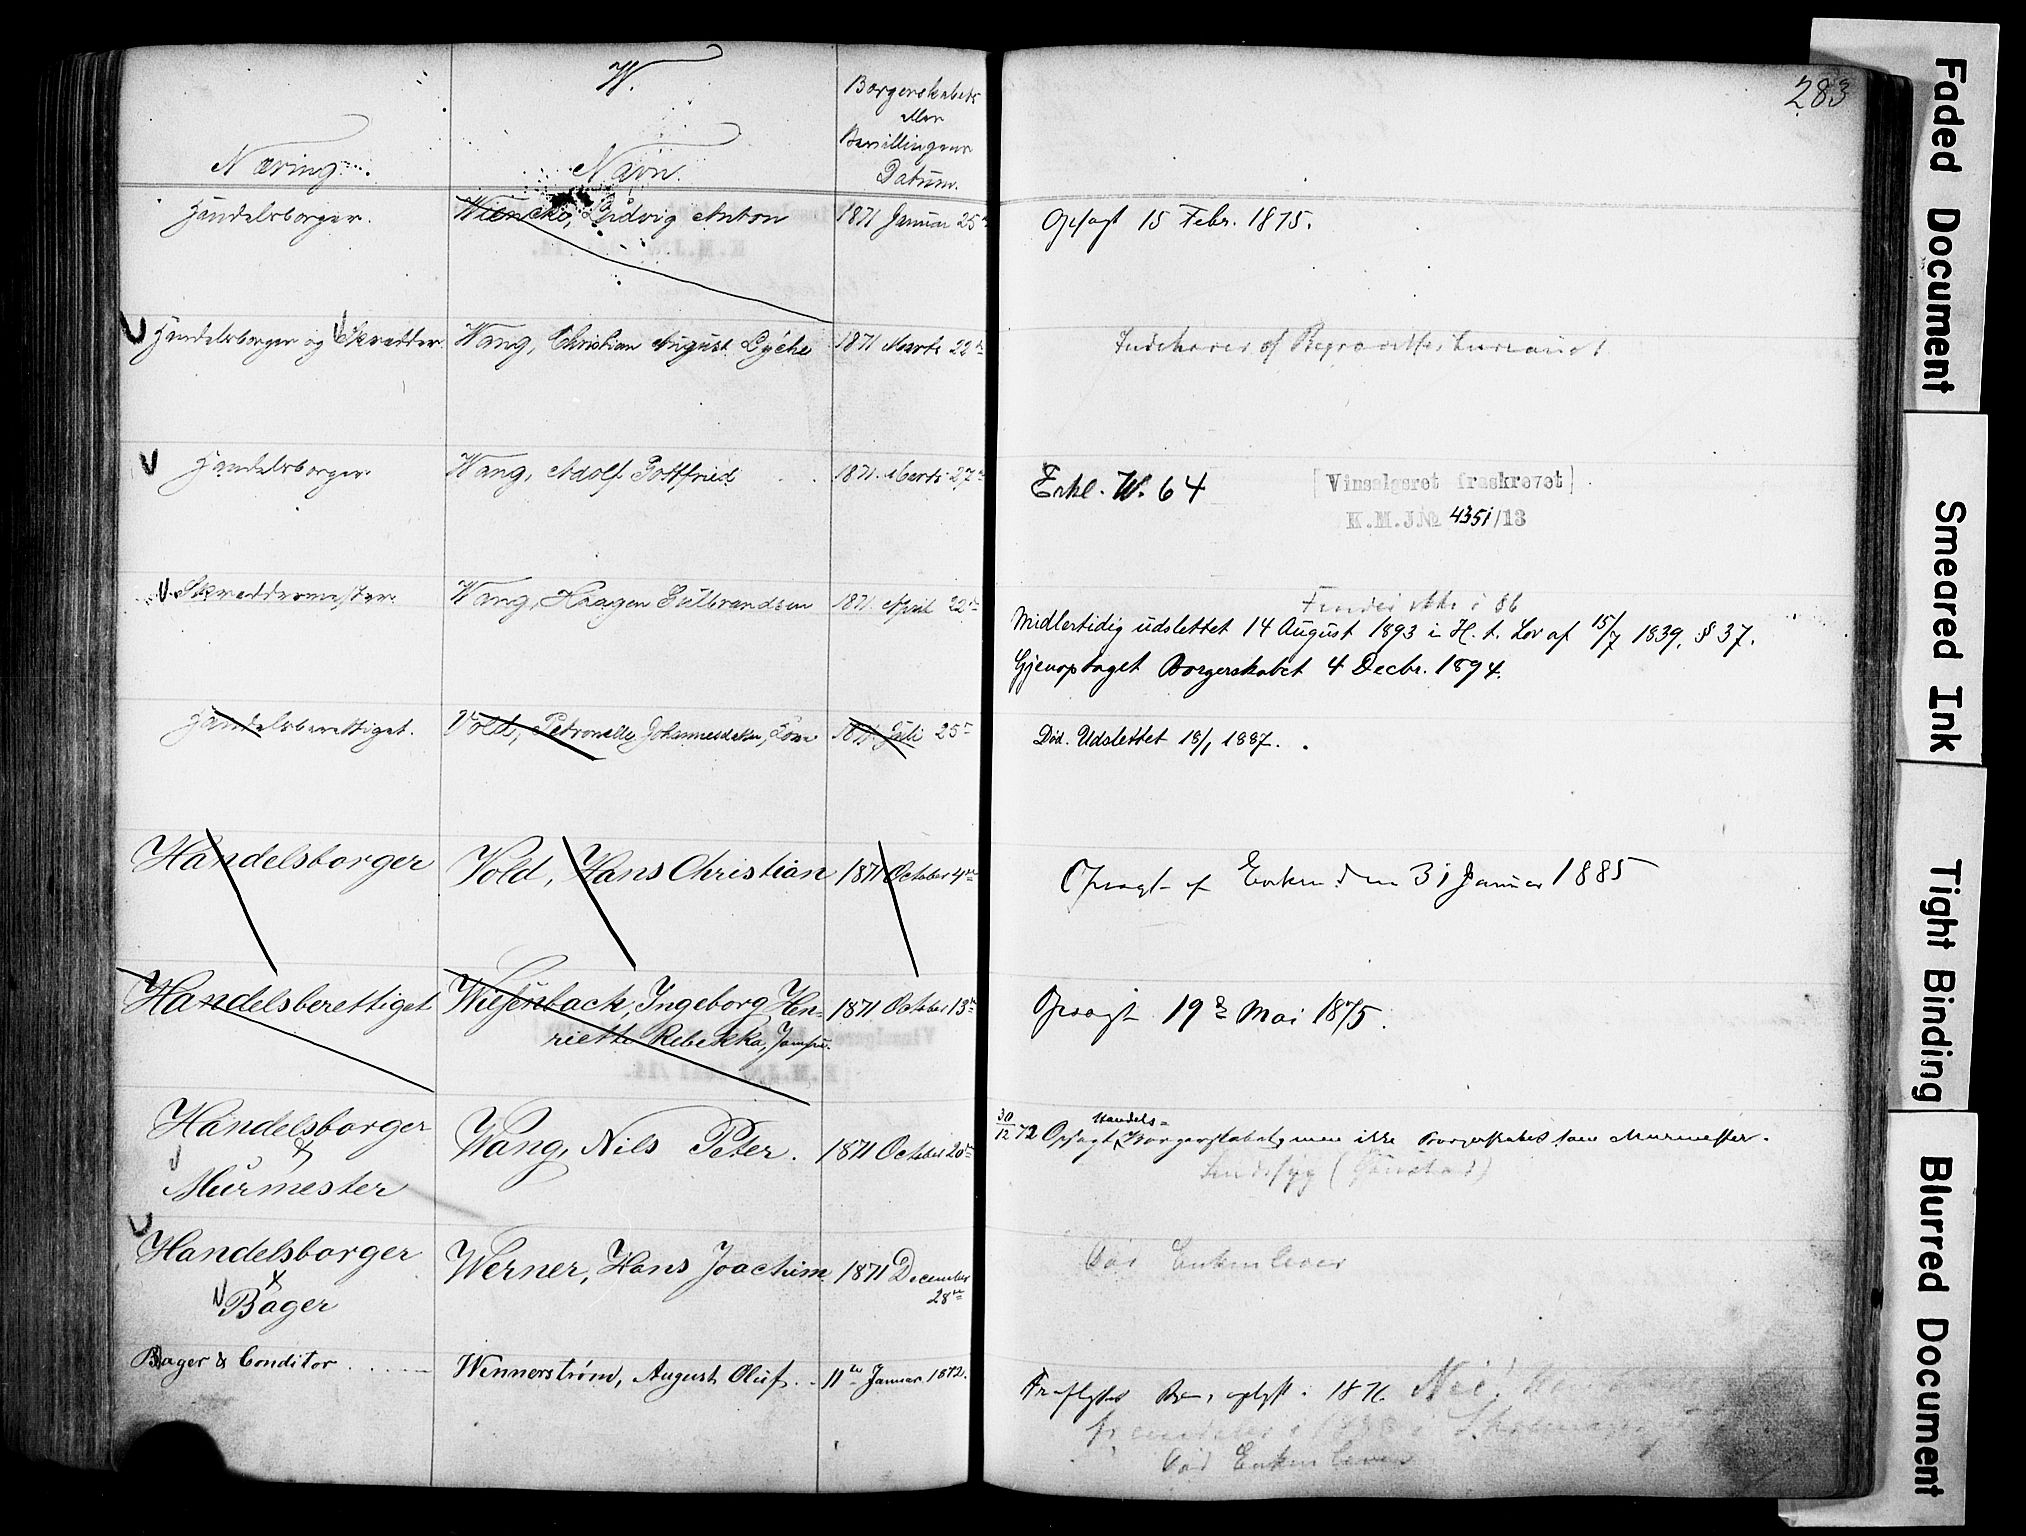 W.
283
Næring
Navn.
Borgerskabets
eller
Bevillingens
Datum.
Handelsborger. Wiencke, Ludvig Anton 1871 Januar 25de Opsagt 15 Febr. 1875.
Handelsborger og Skrædder Wang, Christian August Lyche 1871 Marts 22de Indehaver af Begravelsesbureauet
Handelsborger Wang, Adolf Gottfried 1871 Marts 27de Erkl. W. 64 [Vinsalgsret fraskrevet]
K.M.J№ 4351/13
Skræddermester Wang, Haagen Gulbrandsen 1871 April 22de Findes ikke i 86
Midlertidig udslettet 14 August 1893 i H. t. Lov af 15/7 1839, § 37.
Gjenoptaget Borgerskabet 4 Decbr. 1894.
Handelsberettiget. Vold, Petronelle Johannesdatter, 1871 Juli 25de Død. Udslettet 18/1 1887.
Handelsborger Vold, Hans Christian 1871 October 4de Opsagt af Enken den 31 Januar 1885
Handelsberettiget Wiesenback, Ingeborg Hen- 1871 October 13de Opsagt 19de Mai 1875.
riette Rebekka, Jomfru.
Handelsborger
&
Murmester
Wang, Nils Peter. 1871 October 20de 30/12 72 Opsagt Handels-
Borgerskabet, men ikke Borgerskabet som Murmester.
Sindssyg (Gaustad)
Handelsborger
&
Bager
Werner, Hans Joachim 1871 December
28de
Død Enken lever
Bager & Conditor Wennerstrøm, August Oluf 11te Januar 1872. Fraflyttet Byen, oplyst 1876. Nei!
i 1888 i
Død Enken lever
Faded Document
Smeared Ink
Tight Binding
Blurred Document